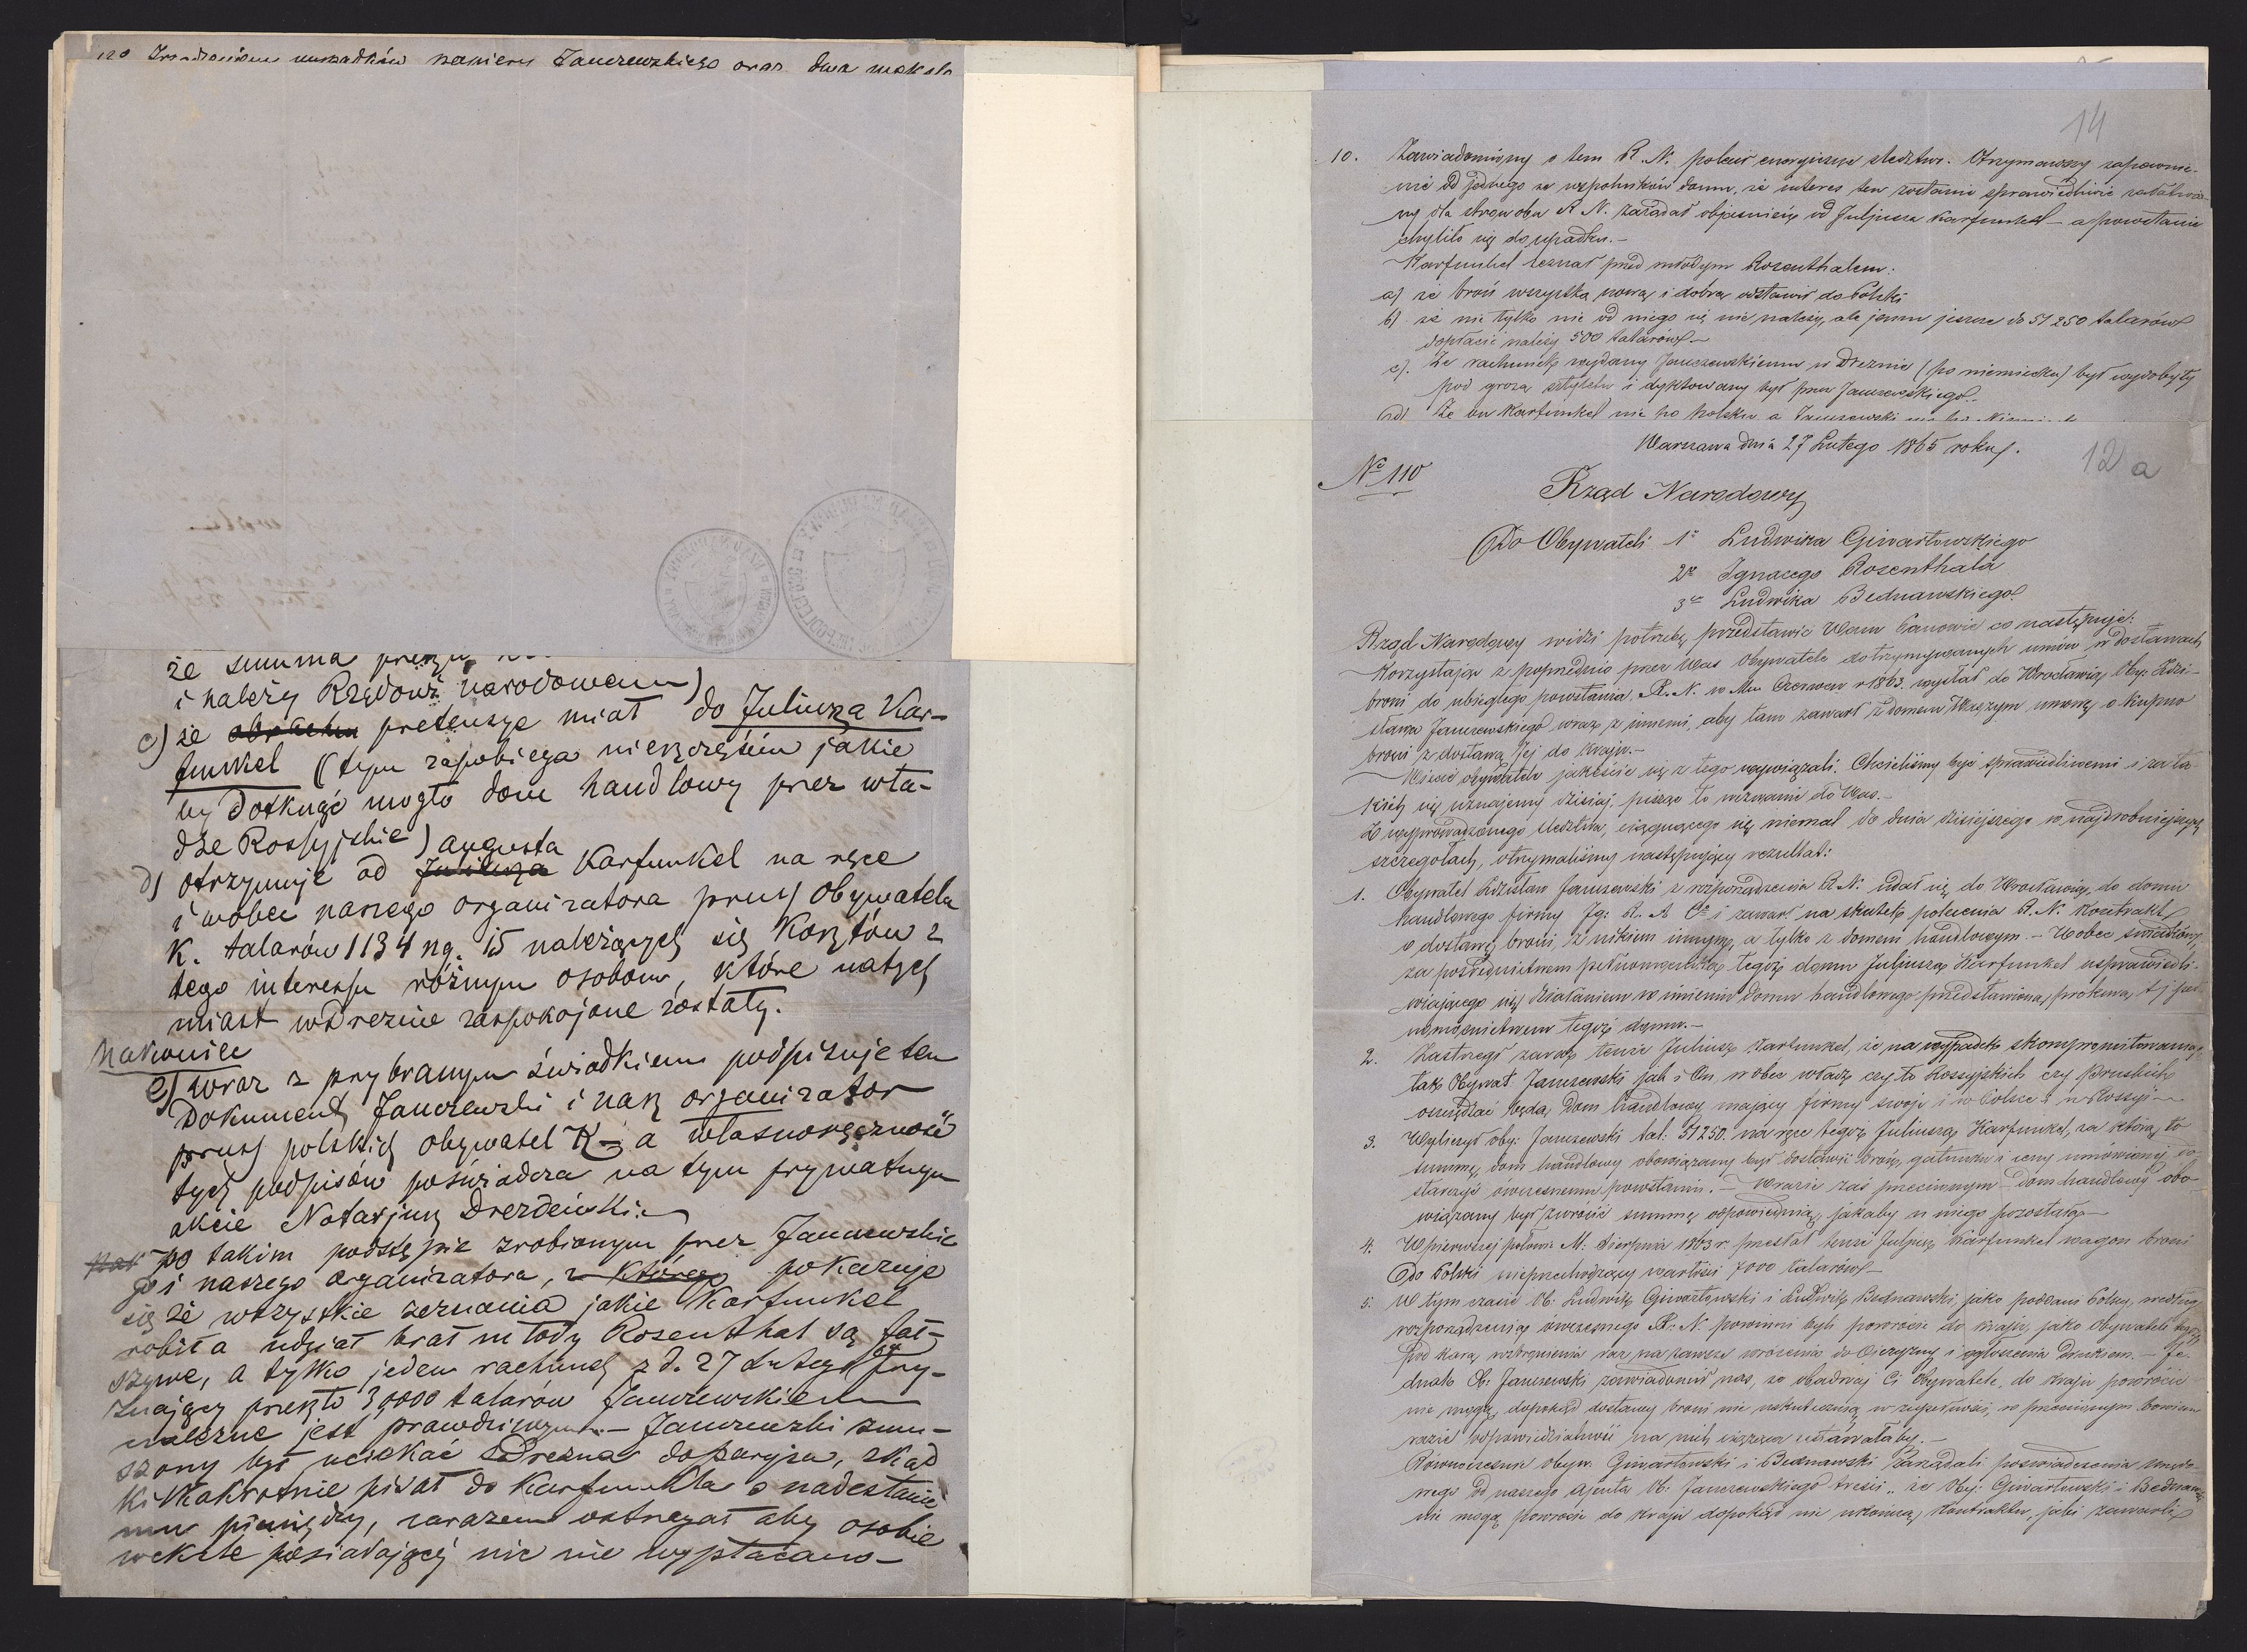 nakowień papieru Janczewskiego oraz dwa
że summa
i należy Rządowi narodowemu)
c) że pretensye miał do Juliusza Kar-
funkel (tym zapobiega nieszczęściu jakie
by dotknąć mogło dom handlowy przez wła-
dze Rossyjskie) Augusta
d) otrzymuje od Juliusza Karfunkel na ręce
i wobec naszego organizatora prus: Obywatela
K. talarów 1134 ng. 15 należących się kosztów z
tego interessu różnym osobom, które natych
miast w Dreznie zaspokojone zostały.
Nakoniec
e) wraz z przybranym świadkiem podpisuje ten
Dokument Janczewski i nasz organizator
prus: polskich obywatel K– a własnoręczność
tych podpisów poświadcza na tym prywatnym
akcie Notarjusz Drezdeński.
po takim podstępie zrobionym przez Janczewskie
go i naszego organizatora, z którego pokazuje
się że wszystkie zeznania jakie Karfunkel
robił a udział brał młody Rosenthal są fał-
szywe, a tylko jeden rachunek z d. 27 Lutego przy-
znający przeszło 30,000 talarów Janczewskiemu
należne jest prawdziwym. – Janczewski zmu-
szony był uciekać z Drezna do Paryża, skąd
kilkakrotnie pisał do Karfunkla o nadesłanie
mu pieniędzy, zarazem ostrzegał aby osobie
weksle posiadającej nic nie wypłacano –
14
10. Zawiadomiony o tem R. N. polecił energiczne śledztwo. Otrzymawszy zapewnie-
nie od jednego ze wspólników domu, że interes ten zostanie sprawiedliwie załatwio-
ny dla stron obu R. N. zażądał objaśnienia od Juljusza Karfunkel – a powstanie
chyliło się do upadku. –
Karfunkel zeznał przed młodym Rosenthalem:
a) że broń wszystką nową i dobrą odstawił do Polski
b) że nie tylko nic od niego się nie należy, ale jemu jeszcze do 51250 talarów
dopłacić należy 500 talarów. –
c). Że rachunek wydany Janczewskiemu w Dreznie (po niemiecku) był wydobyty
pod grozą sztyletu i dyktowany był przez Janczewskiego. –
d) Że on Karfunkel nie po Polsku a Janczewski nie po
Warszawa dnia 27 Lutego 1865 roku.
12 a
No 110
Rząd Narodowy
Do Obywateli 1o Ludwika Giwartowskiego
2o Ignacego Rosenthala
3o Ludwika Bednawskiego.
Rząd Narodowy widzi potrzebę przedstawić Wam Panowie co następuje:
Korzystając z poprzednio przez Was Obywatele dotrzymywanych umów w dostawach
broni do ubiegłego powstania. R. N. w Mcu Czerwcu r 1863. wysłał do Wrocławia, Oby: Zdzi-
sława Janczewskiego wraz z innemi, aby tam zawarł z domem Waszym umowę o kupno
broni z dostawą jej do kraju. –
Wiecie obywatele jakeście się z tego wywiązali. Chcieliśmy być sprawiedliwemi i za ta-
kich się uznajemy dzisiaj, pisząc to wezwanie do Was. –
Z wyprowadzonego śledztwa, ciągnącego się niemal do dnia dzisiejszego w najdrobniejszych
szczegółach, otrzymaliśmy następujący rezultat:
1. Obywatel Zdzisław Janczewski z rozporządzenia R. N. udał się do Wrocławia, do domu
handlowego firmy Ig: R. & Co i zawarł na skutek polecenia R. N. Kontrakt
o dostawę broni, z nikiem innym, a tylko z domem handlowym. – Wobec świadków,
za pośrednictwem pełnomocnika tegoż domu Juljusza Karfunkel usprawiedli-
wiającego się działaniem w imieniu domu handlowego przedstawioną prokurą, tj. peł-
nomocnictwem tegoż domu. –
2. Zastrzegł zaraz tenże Juliusz Karfunkel, że na wypadek skompromitowania,
tak Obywat. Janczewski jak i On, wobec władz czy to Rossyjskich czy Pruskich
oszczędzać będą Dom handlowy mający firmy swoje i w Polsce i w Rossyi –
3. Wyliczył oby: Janczewski tal: 51250. na ręce tegoż Juliusza Karfunkel, za którą to
summę, dom handlowy obowiązany był dostawić broń, gatunku i ceny umówionej do-
starczyć ówczesnemu powstaniu. – W razie zaś przeciwnym – Dom handlowy obo-
wiązany był zwrócić summę odpowiednią, jakaby u niego pozostała –
4. W pierwszej połowie M: Sierpnia 1863 r. przesłał tenże Juljusz Karfunkel wagon broni
do Polski nieprzechodzący wartości 7000 talarów –
5. W tym czasie Ob: Ludwik Giwartowski i Ludwik Bednawski, jako poddani Polscy, według
rozporządzenia ówczesnego R. N. powinni byli powrócić do kraju, jako Obywatele tegoż,
pod karą wzbronienia raz na zawsze wrócenia do Ojczyzny i ogłoszenia Drukiem. – Je-
dnak Ob: Janczewski zawiadomił nas, że obadwaj Ci Obywatele, do kraju powrócić
nie mogą, dopokąd dostawy broni nie uskutecznią w zupełności, w przeciwnym bowiem
razie odpowiedzialność na nich ciążąca ustawałaby. –
Równocześnie obyw. Giwartowski i Bednawski zażądali poświadczenia
nego od naszego ajenta Ob: Janczewskiego treści „że Oby: Giwartowski i Bednawski
nie mogą powrócić do kraju dopokąd nie ukończą kontraktu, jaki zawarli